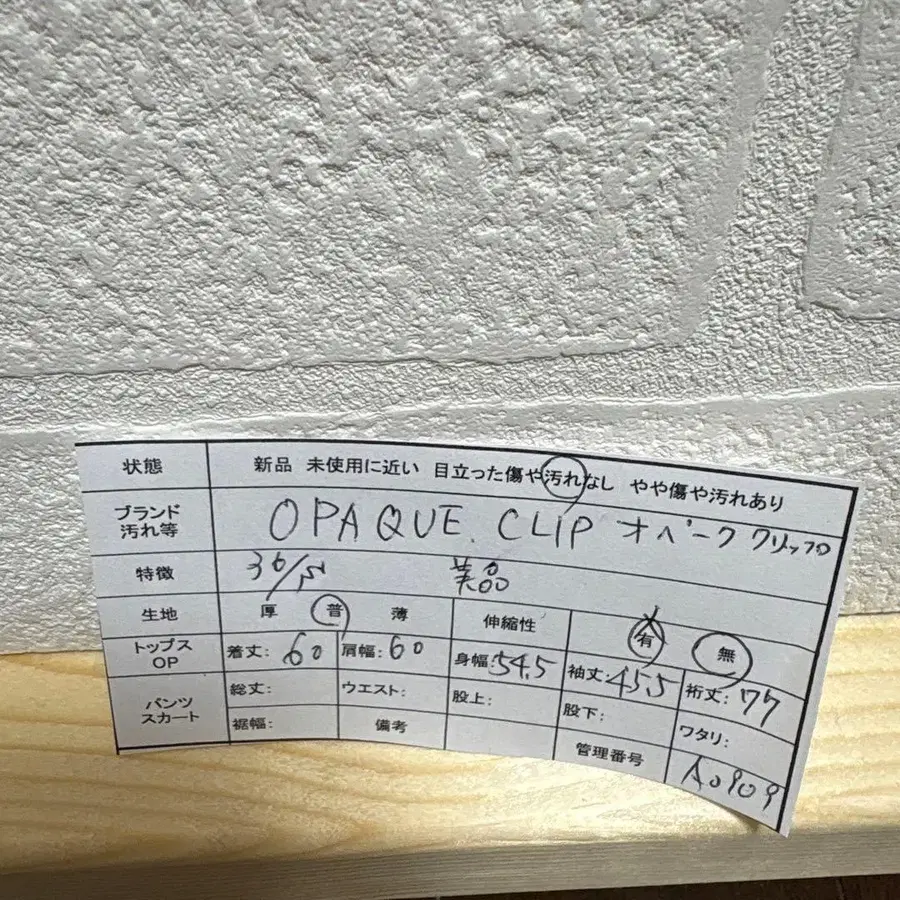 状態 新品 未使用に近い 目立った傷や汚れなし やや傷や汚れあり
ブランド 汚れ等 OPAQUE.CLIP オペーククリップ
特徴 36/ 美品
生地 厚 普 薄 伸縮性 有 無
トップス OP 着丈:60 肩幅:60 身幅:54.5 袖丈:45.5 裄丈:77
パンツ スカート 総丈: ウエスト: 股上: 股下: ワタリ:
裾幅: 備考 管理番号 A0909